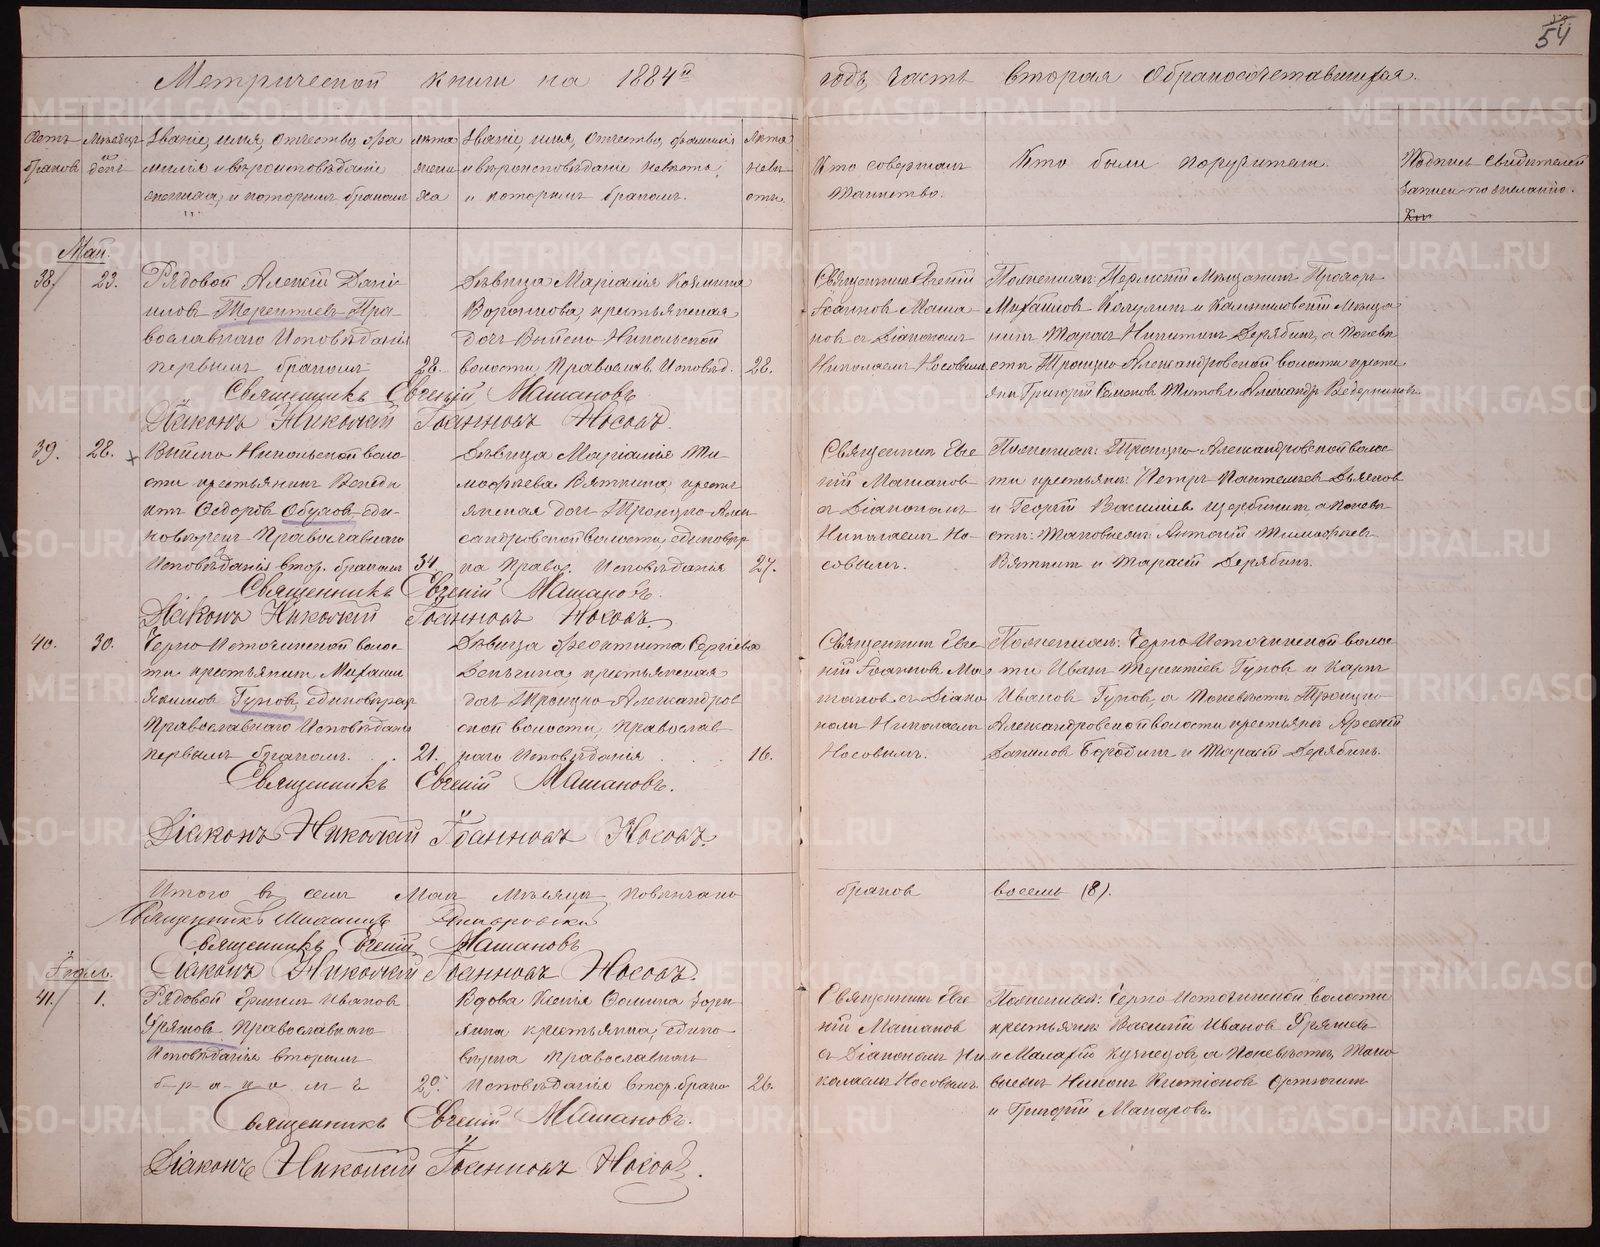 54
Метрической книги на 1884й годъ часть вторая о бракосочетавшихся.
Счетъ браковъ
Мѣсяцъ и день
Званіе, имя, отчество, фа
милія и вѣроисповѣданіе
жениха, и которымъ бракомъ
Лѣта жени ха
Званіе, имя, отчество, фамилія
и вѣроисповѣданіе невѣсты,
и которымъ бракомъ.
Лѣта невѣ сты.
Кто совершалъ
таинство.
Кто были поручители.
Подпись свидѣтелей
записи по желанію.
Май.
38.
23.
Рядовой Алексій Дані
иловъ Терентьевъ Пра
вославнаго Исповѣданія
первымъ бракомъ
28.
Дѣвица Маріамія Козмина
Воронцова, крестьянская
дочь Выйско Никольской
волости, Православ. Исповѣд.
28.
Священникъ Евгеній
Іоанновъ Маша
новъ съ Діакономъ
Николаемъ Носовымъ
По женихѣ: Пермскій Мѣщанинъ Прохоръ
Михайловъ Качулинъ и Камышловскій Мѣща
нинъ Тарасъ Никитинъ Дерябинъ, а по невѣ
стѣ Троицко Александровской волости кресть
яне Григорій Семеновъ Титовъ и Александръ Ведерниковъ.
Священникъ Евгеній Машановъ
Діаконъ Николай Іоанновъ Носовъ.
39.
28.
Выйско Никольской воло
сти крестьянинъ Венеди
ктъ Ѳедоровъ Обуховъ, еди
новѣрецъ Православнаго
Исповѣданія втор. бракомъ
34
Дѣвица Маріамія Ти
моѳеева Вяткина, крестъ
янская дочь Троицко Алек
сандровской волости, единовѣр
ка Правос. Исповѣданія
27.
Священникъ Евге
ній Машановъ
съ Діакономъ
Николаемъ Но
совымъ.
По женихѣ: Троицко Александровской волос
ти крестьяне: Петръ Пантелеевъ Дьячков
и Георгій Васильевъ Щербининъ а по невѣ
стѣ: Таковые же: Антоній Тимоѳеевъ
Вяткинъ и Тарасій Дерябинъ.
Священникъ Евгеній Машановъ.
Діаконъ Николай Іоанновъ Носовъ.
40.
30.
Черно Источинской волос
ти крестьянинъ Михаилъ
Якимовъ Гуновъ, единовѣрецъ
Православнаго Исповѣданія
первымъ бракомъ.
21.
Дѣвица Ѳеоктиста Сергіева
крестьянская
дочь Троицко Александров
ской волости, Православ
наго Исповѣданія
16.
Священникъ Евге
ній Іоанновъ Ма
шановъ съ Діако
номъ Николаемъ
Носовымъ.
По женихѣ: Черно Источинской волос
ти Иванъ Терентіевъ Гуновъ и Карпъ
Ивановъ Гуновъ, а по невѣстѣ Троицко
Александровской волости крестьяне Арсеній
Даниловъ Бородинъ и Тарасій Дерябинъ.
Священникъ Евгеній Машановъ.
Діаконъ Николай Іоанновъ Носовъ.
Итого въ семъ Маѣ мѣсяцѣ повѣнчано браковъ восемь (8).
Священникъ Михаилъ
Священникъ Евгеній Машановъ
Діаконъ Николай Іоанновъ Носовъ.
Іюль.
41.
1.
Рядовой Ермилъ Ивановъ
Уряшовъ Православнаго
Исповѣданія вторымъ
б-р-а-к-о-м-ъ
29.
Вдова Ксенія Ѳомина Зоря
нина крестьянка, едино
вѣрка Православнаго
Исповѣданія втор. брако
26.
Священникъ Евге
ній Машановъ
съ Діакономъ Ни
колаемъ Носовымъ.
По женихѣ: Черно Источинской волости
крестьяне: Василій Ивановъ Уряшевъ
и Малахій Кузнецовъ а по невѣстѣ Тако
вые же Никонъ
и Григорій Макаровъ.
Священникъ Евгеній Машановъ.
Діаконъ Николай Іоанновъ Носовъ.
METRIKI.GASO-URAL.RU